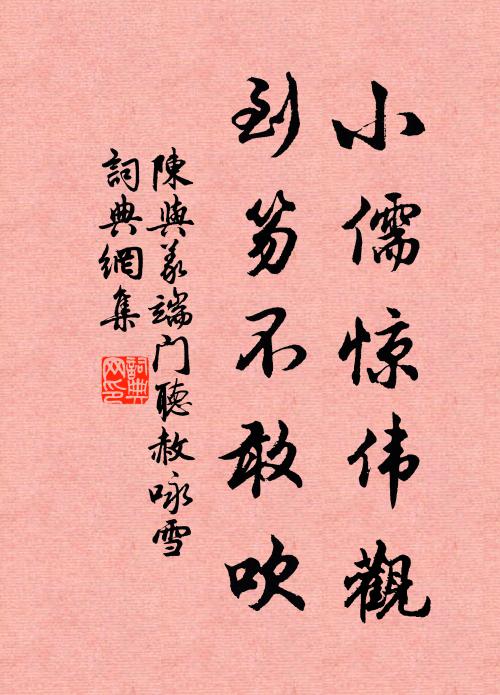 小儒惊伟觀
到笏不敢吹
陳與義端門聽赦咏雪
詞典網集
詞典
网印